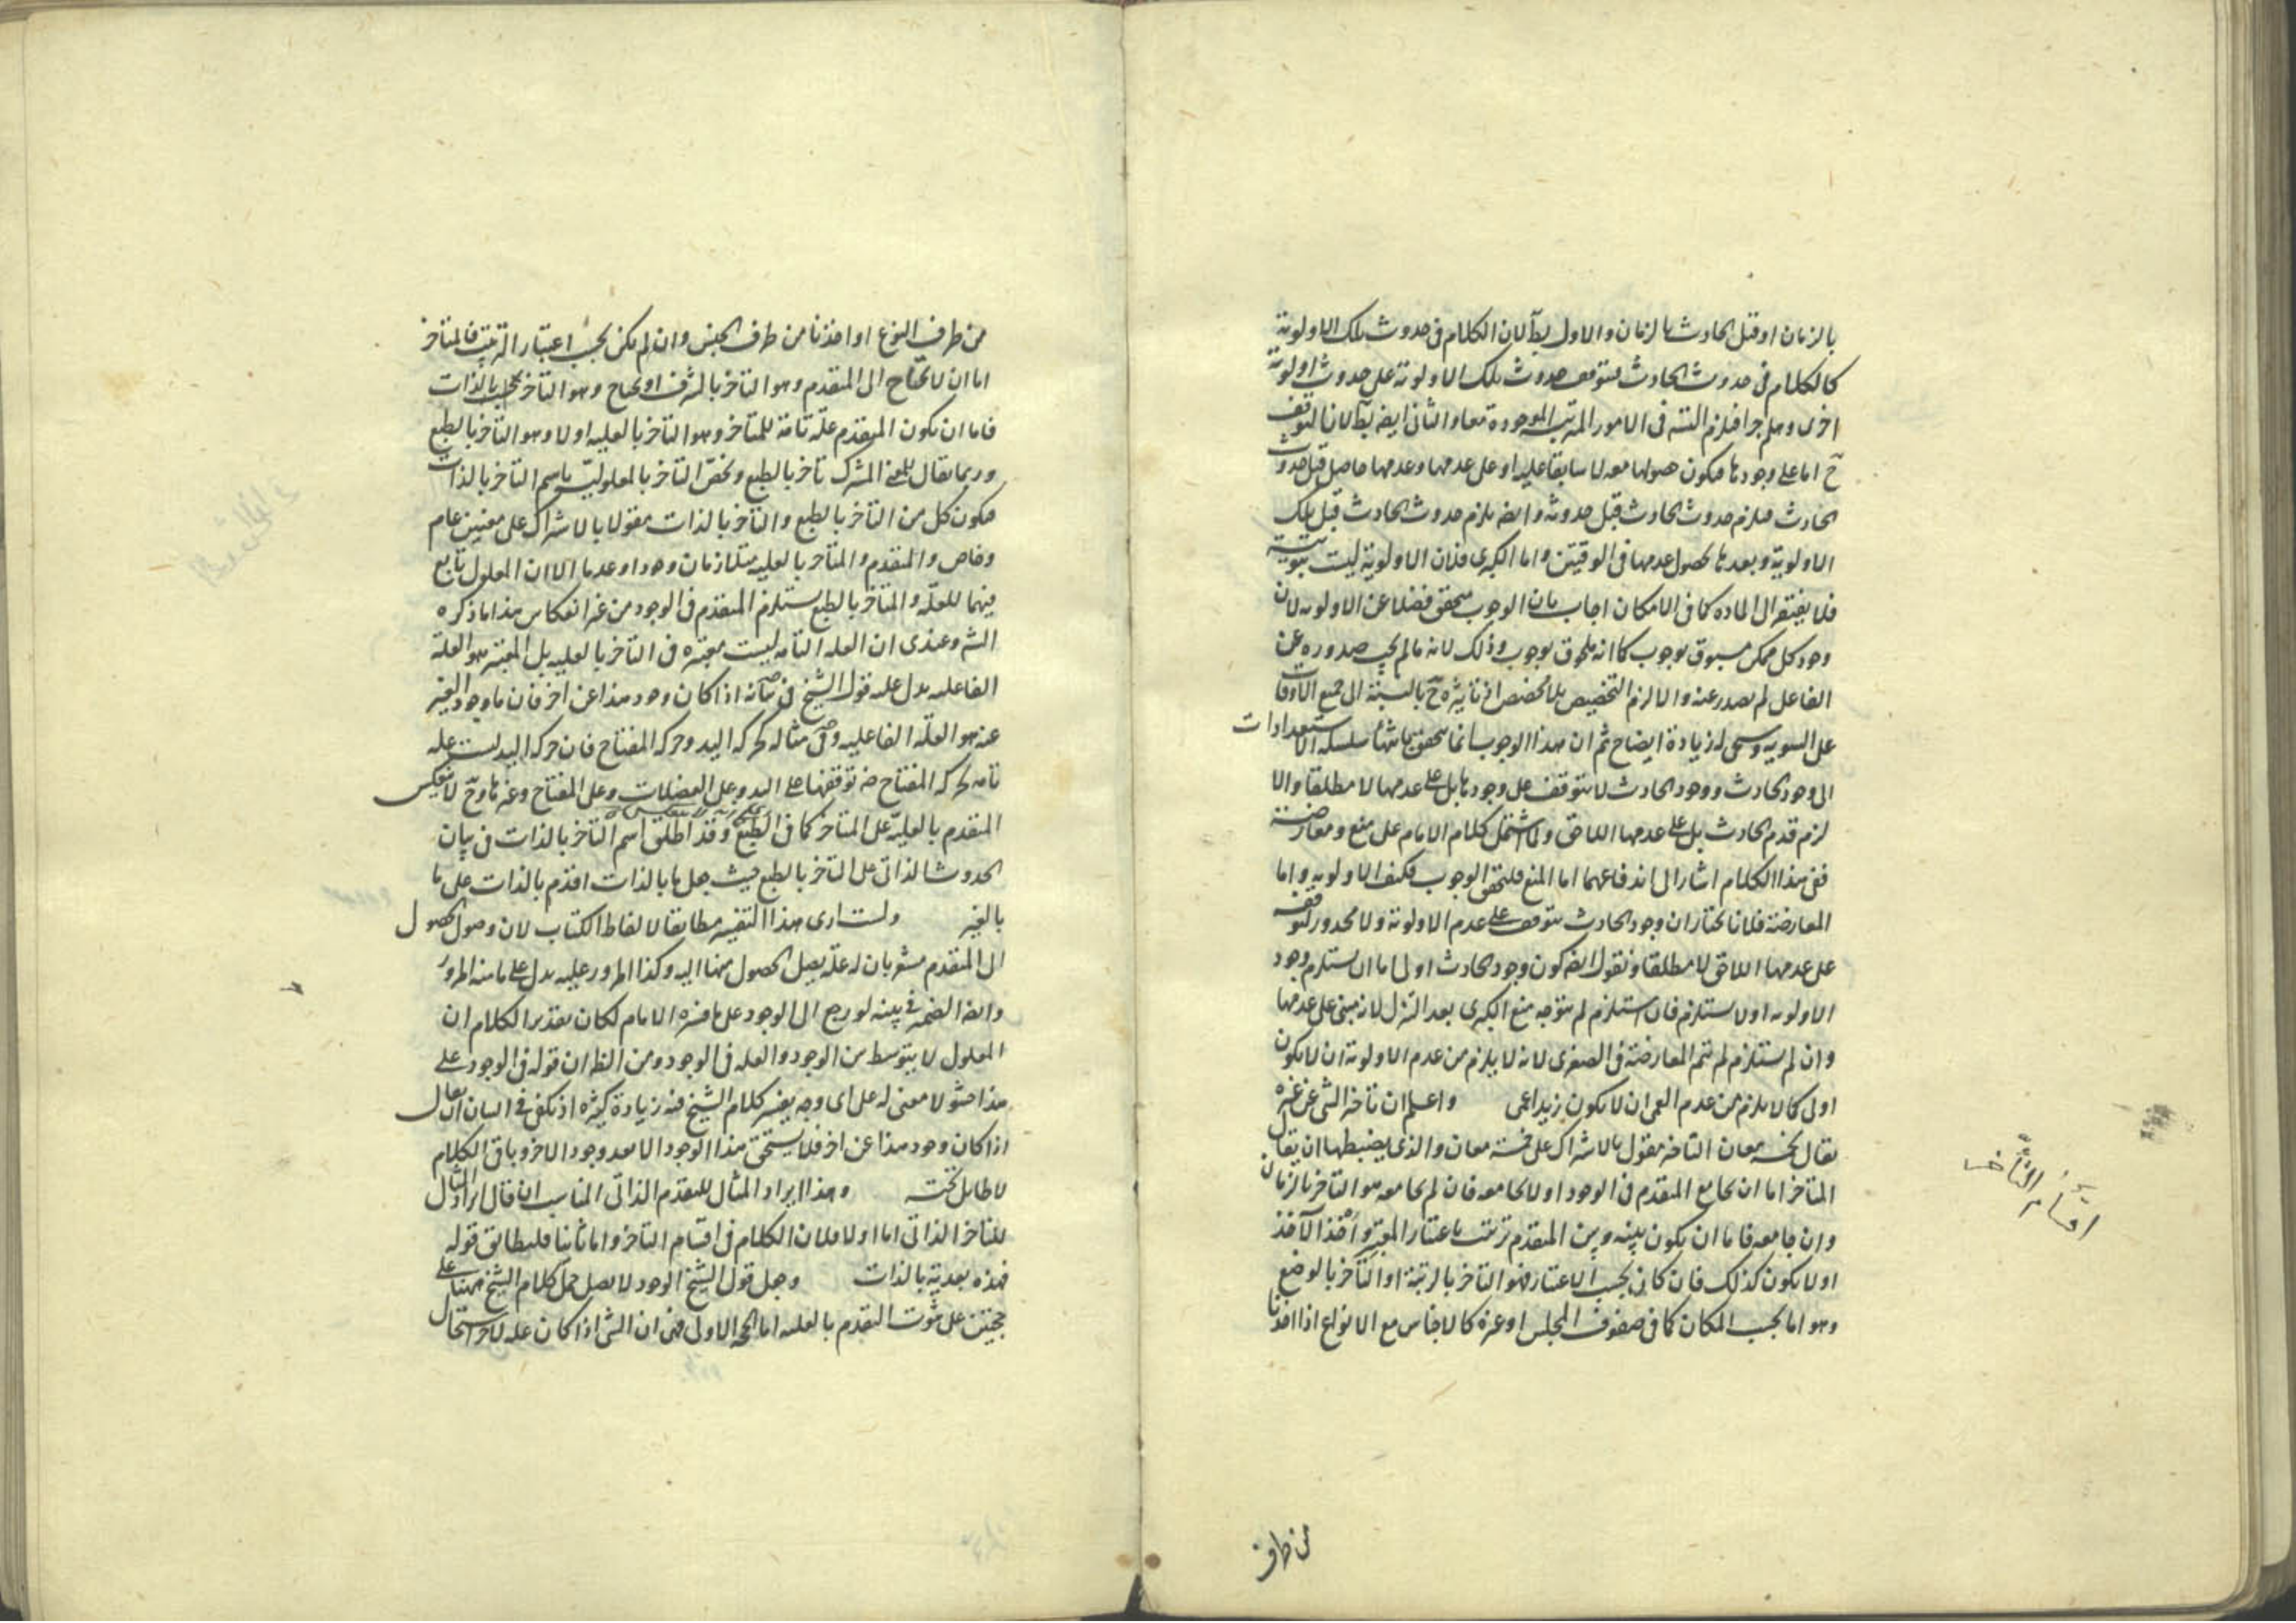 بالزمان او قبل الحادث بالزمان والاول بط لان الكلام فى حدوث تلك الاولوية
كالكلام فى حدوث الحادث فيتوقف حدوث تلك الاولوية على حدوث اولوية
اخرى وهلم جرا فيلزم التس فى الامور المرتبة الموجودة معا والثانى ايضه بط لانا لتوقف
ح اما على وجودها فيكون حصولها معه لا سابقا عليه او على عدمها وعدمها حاصل قبل حدوث
الحادث فيلزم حدوث الحادث قبل حدوثه وايضه يلزم حدوث الحادث قبل تلك
الاولوية وبعدها لحصول عدمها فى الوقتين واما الكبرى فلان الاولوية ليست ثبوتية
فلا يفتقر الى الماده كما فى الامكان اجاب بان الوجوب متحقق فضلا عن الاولويه لان
وجود كل ممكن مسبوق بوجوب كما انه ملحوق بوجوب وذلك لانه ما لم يجب صدوره عن
الفاعل لم يصدر عنه والا لزم التخصيص بلا مخصص اذ تاثيره ح بالنسبة الى جميع الاوقات
على السويه وسيجى له زيادة ايضاح ثم ان هذا الوجوب انما يتحقق بانتهاء سلسلة الاستعدادات
الى وجود الحادث ووجود الحادث لا يتوقف على وجودها بل على عدمها لا مطلقا والا
لزم قدم الحادث بل على عدمها اللاحق ولما اشتمل كلام الامام على منع ومعارضة
ففى هذا الكلام اشار الى اندفاعهما اما المنع فلتحقق الوجوب فكيف الاولويه واما
المعارضة فلانا نختار ان وجود الحادث يتوقف على عدم الاولوية ولا محذور لتوقفه
على عدمها اللاحق لا مطلقا ونقول ايضه كون وجود الحادث اولى اما ان يستلزم وجود
الاولويه او لا يستلزم فان استلزم لم يتوجه منع الكبرى بعد التنزل لانه مبنى على عدمها
وان لم يستلزم لم تتم المعارضة فى الصغرى لانه لا يلزم من عدم الاولوية ان لا يكون
اولى كما لا يلزم من عدم العمى ان لا يكون زيد اعمى واعلم ان تاخر الشى عن غيره
يقال لخمسه معان التاخر مقول بالاشتراك على خمسة معان والذى يضبطها ان يقال
المتاخر اما ان يجامع المتقدم فى الوجود او لا يجامعه فان لم يجامعه هو التاخر بالزمان
وان جامعه فاما ان يكون بينه وبين المتقدم ترتيب باعتبار المعتبر واخذ الآخذ
او لا يكون كذلك فان كان بحسب الاعتبار فهو التاخر بالرتبة او التاخر بالوضع
وهو اما بحسب المكان كما فى صفوف المجلس او غيره كالاجناس مع الانواع اذا اخذنا
اقسام التأخر
من طرف
من طرف النوع او اخذنا من طرف الجنس وان لم يكن بحسب اعتبار الترتيب فالمتاخر
اما ان لا يحتاج الى المتقدم وهو التاخر بالشرف او يحتاج وهو التاخر بحسب الذات
فاما ان يكون المتقدم علة تامة للمتاخر وهو التاخر بالعليه او لا وهو التاخر بالطبع
وربما يقال للمعنى المشترك تاخر بالطبع ويخص التاخر بالمعلولية باسم التاخر بالذات
فيكون كل من التاخر بالطبع والتاخر بالذات مقولا بالاشتراك على معنيين عام
وخاص والمتقدم والمتاخر بالعليه متلازمان وجودا وعدما الا ان المعلول تابع
فيهما للعلة والمتاخر بالطبع يستلزم المتقدم فى الوجود من غير انعكاس هذا ما ذكره
الش وعندى ان العله التامه ليست معتبره فى التاخر بالعليه بل المعتبر هو العلة
الفاعليه يدل عليه قول الشيخ فى بيانه اذا كان وجود هذا عن اخر فان ما وجود الغير
عنه هو العلة الفاعليه وفى مثاله كحركه اليد وحركه المفتاح فان حركه اليد ليست علة
تامه لحركه المفتاح ضه توقفها على اليد وعلى العضلات وعلى المفتاح وغيرها وح لا ينعكس
المتقدم بالعلية على المتاخر كما فى الطبع وقد اطلق اسم التاخر بالذات فى بيان
الحدوث الذاتى على التاخر بالطبع حيث جعل ما بالذات اقدم بالذات على ما
بالغير ولست ارى هذا التفسير مطابقا لالفاظ الكتاب لان وصول الحصول
الى المتقدم مشعر بان له علة يصل الحصول منها اليه وكذا المرور عليه يدل على ما منه المرور
وايضا الضمير فى بينه لو رجع الى الوجود على ما فسره الامام لكان تقدير الكلام ان
المعلول لا يتوسط بين الوجود والعله فى الوجود ومن الظ ان قوله فى الوجود على
هذا حشو لا معنى له على اى وجه يفسر كلام الشيخ فيه زيادة كثيره اذ يكفى فى البيان ان يقال
اذا كان وجود هذا عن اخر فلا يستحق هذا الوجود الا بعد وجود الاخر وباقى الكلام
لا طايل تحته وهذا ايراد المثال للمتقدم الذاتى المناسب ان قال ايراد المثال
للتاخر الذاتى اما اولا فلان الكلام فى اقسام التاخر واما ثانيا فليطابق قوله
فهذه بعدية بالذات وجعل قول الشيخ الوجود لا يصل حمل كلام الشيخ ههنا على
حجتين على ثبوت التقدم بالعليه اما الحجه الاولى فهى ان الشى اذا كان عله لاخر استحال